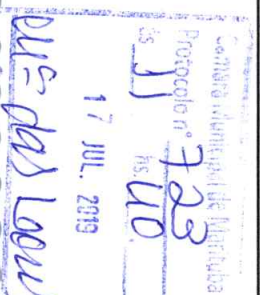 Câmara Municipal de Marituba
Protocolo nº 723
às 11 hs. 40
17 JUL. 2019